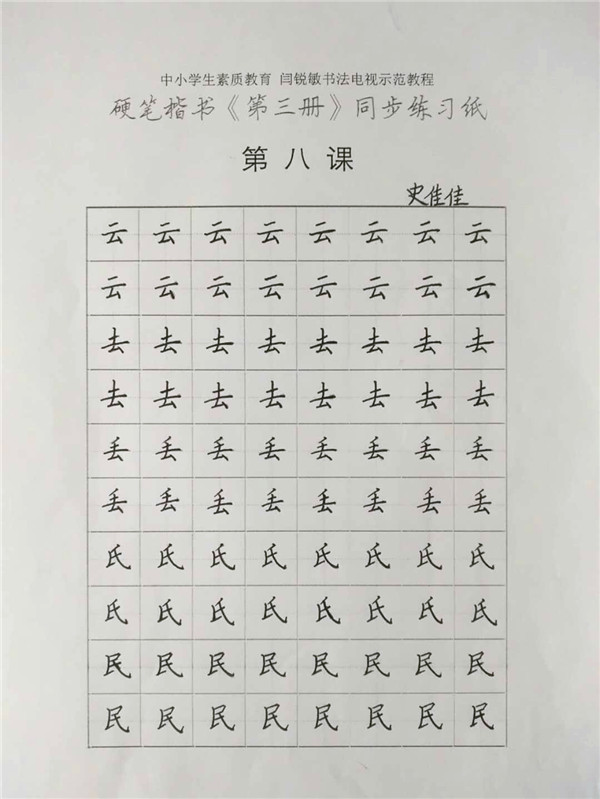 中小学生素质教育 闫锐敏书法电视示范教程
硬笔楷书《第三册》同步练习纸
第八课
史佳佳
云云云云云云云云
云云云云云云云云
去去去去去去去去
去去去去去去去去
丢丢丢丢丢丢丢丢
丢丢丢丢丢丢丢丢
氏氏氏氏氏氏氏氏
氏氏氏氏氏氏氏氏
民民民民民民民民
民民民民民民民民